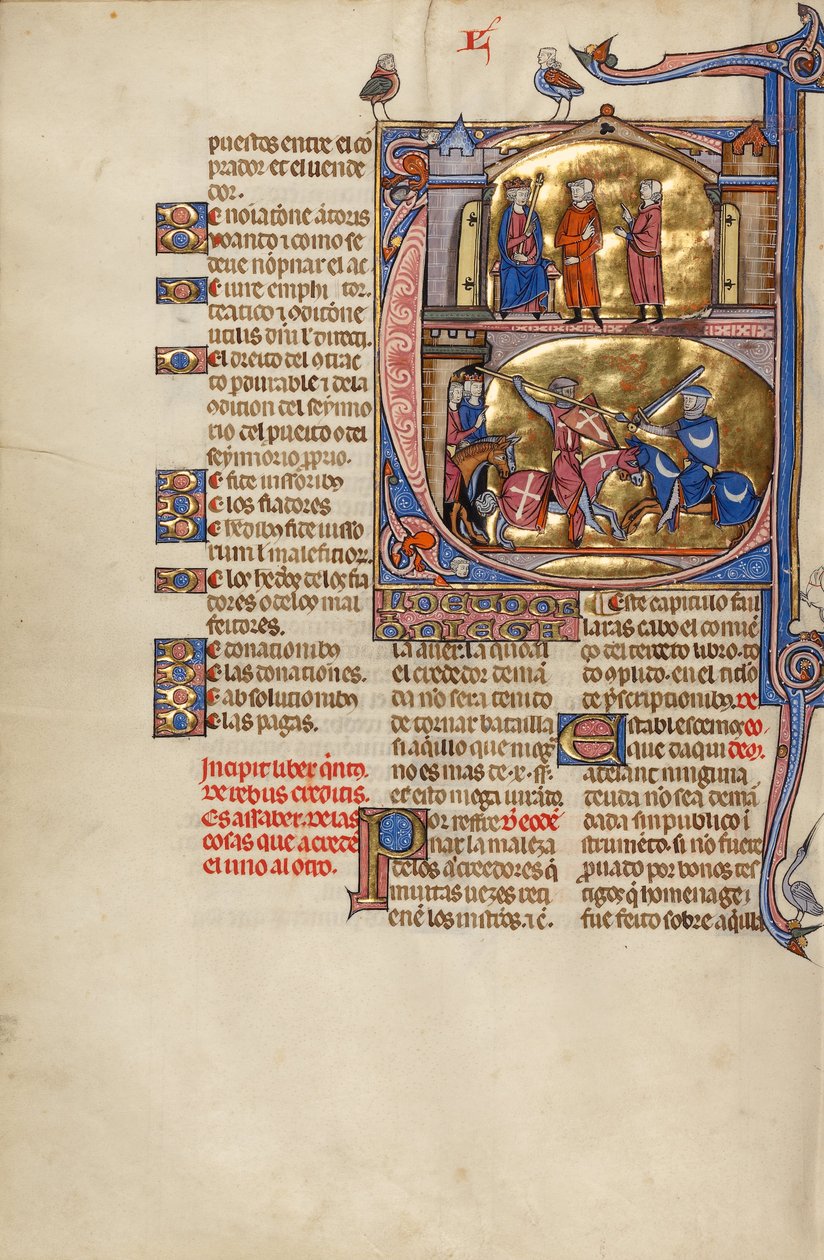 puestos entre el cō
prador et el uende
dor.
De noīatōne ātoris
Quanto ⁊ como se
deue nōpnar el ac
De iure emphi tor.
teatico ⁊ ꝯditōne
utilis dn̄i ł directi.
Del dreito del ꝯtrac
to ꝑdurable ⁊ dela
ꝯdition del seynno
rio del puerto o del
seynnorio ꝓprio.
De fide iussoribꝰ
De los fiadores
De h̄edibꝰ fide iusso
rum ł maleficior̄.
De los h̄edꝰs delos fia
dores o delos mal
feitores.
De donationibꝰ
De las donationes.
De absolutionibꝰ
De las pagas.
Incipit liber q̄ntꝰ.
De rebus creditis.
Es assaber. de las
cosas que acrede
el uno al otro.
EL DEUDOR
Q̄ NIEGA
la auer. la qual
el creedor demā
da no sera tenido
de tornar batailla
si aq̄llo que
no es mas de .x. ss.
et esto niega iurādo.
Por reffre De eodē
nar la maleza
delos acreedores q̄
muitas uezes reti
enē los īstrōs. ⁊ c̄.
Este capitulo fai
laras cabo el comiē
ço del tercero libro. to
do ꝯplido. en el titlo
de pͥscriptionibꝰ. De
Establescemos eo.
que daqui dem.
adelant ninguna
deuda no sea demā
dada sin publico ī
strumēto. si no fuere
ꝓuado por bonos tes
tigos q̄ homenage
fue feito sobre aq̄lla